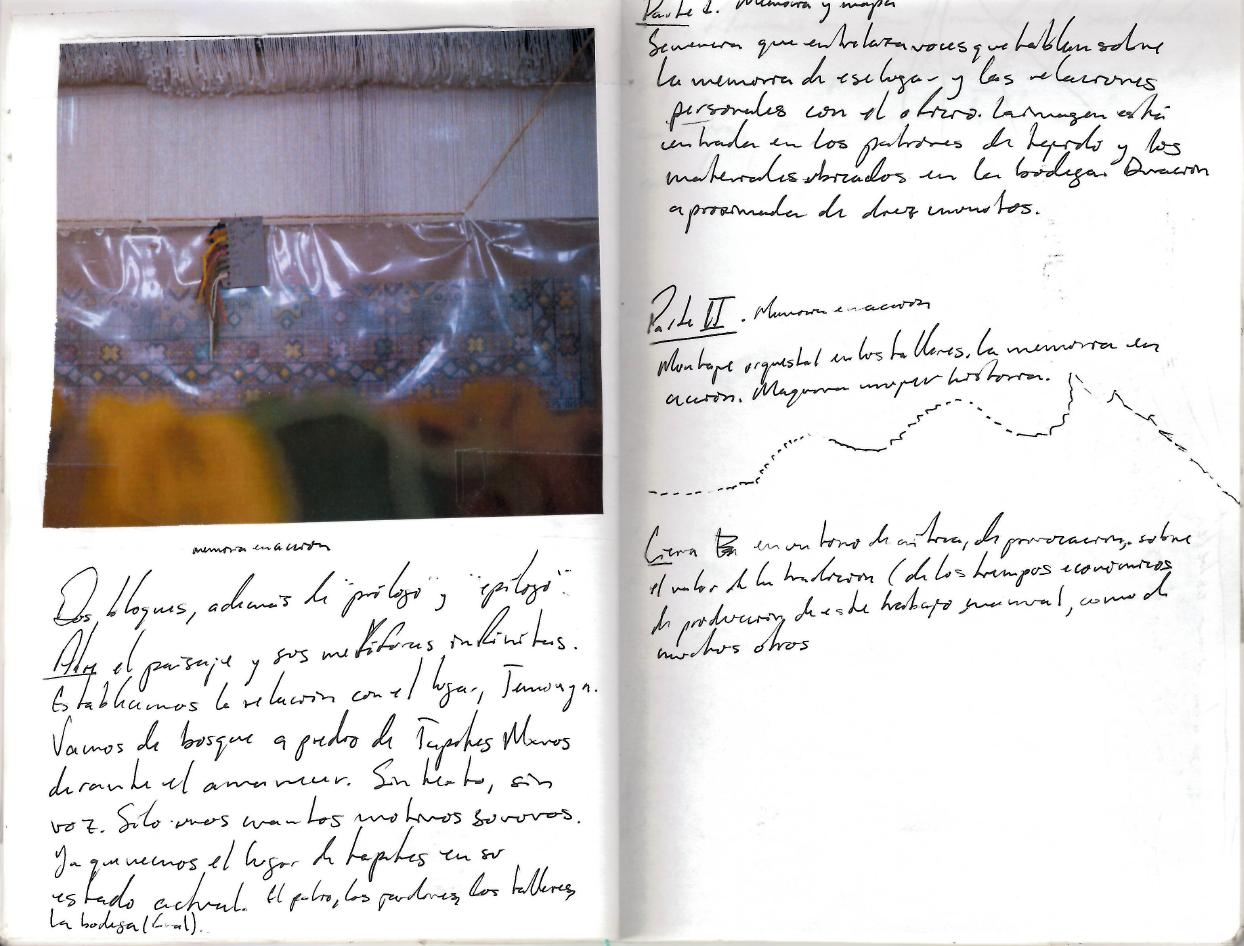 memoria en acción
Dos bloques, además de "prólogo" y "epílogo":
Abre el paisaje y sus metáforas infinitas.
Establecemos la relación con el lugar, Temoaya.
Vamos de bosque a predio de Tapetes Mexas
durante el amanecer. Sin texto, sin
voz. Sólo unos cuantos motivos sonoros.
Ya que vemos el lugar de tapetes en su
estado actual. El patio, los pardones, los talleres,
la bodega
Parte I. Memoria y mapa
Secuencia que entrelaza voces que hablan sobre
la memoria de ese lugar y las relaciones
personales con el oficio. La imagen está
centrada en los patrones de tejido y los
materiales ubicados en la bodega. Duración
aproximada de diez minutos.
Parte II. Memoria en acción
Montaje orquestal en los talleres. La memoria en
acción.
Cierra en un tono de crítica, de provocación, sobre
el valor de la tradición (de los tiempos económicos
de producción de este trabajo manual, como de
muchos otros